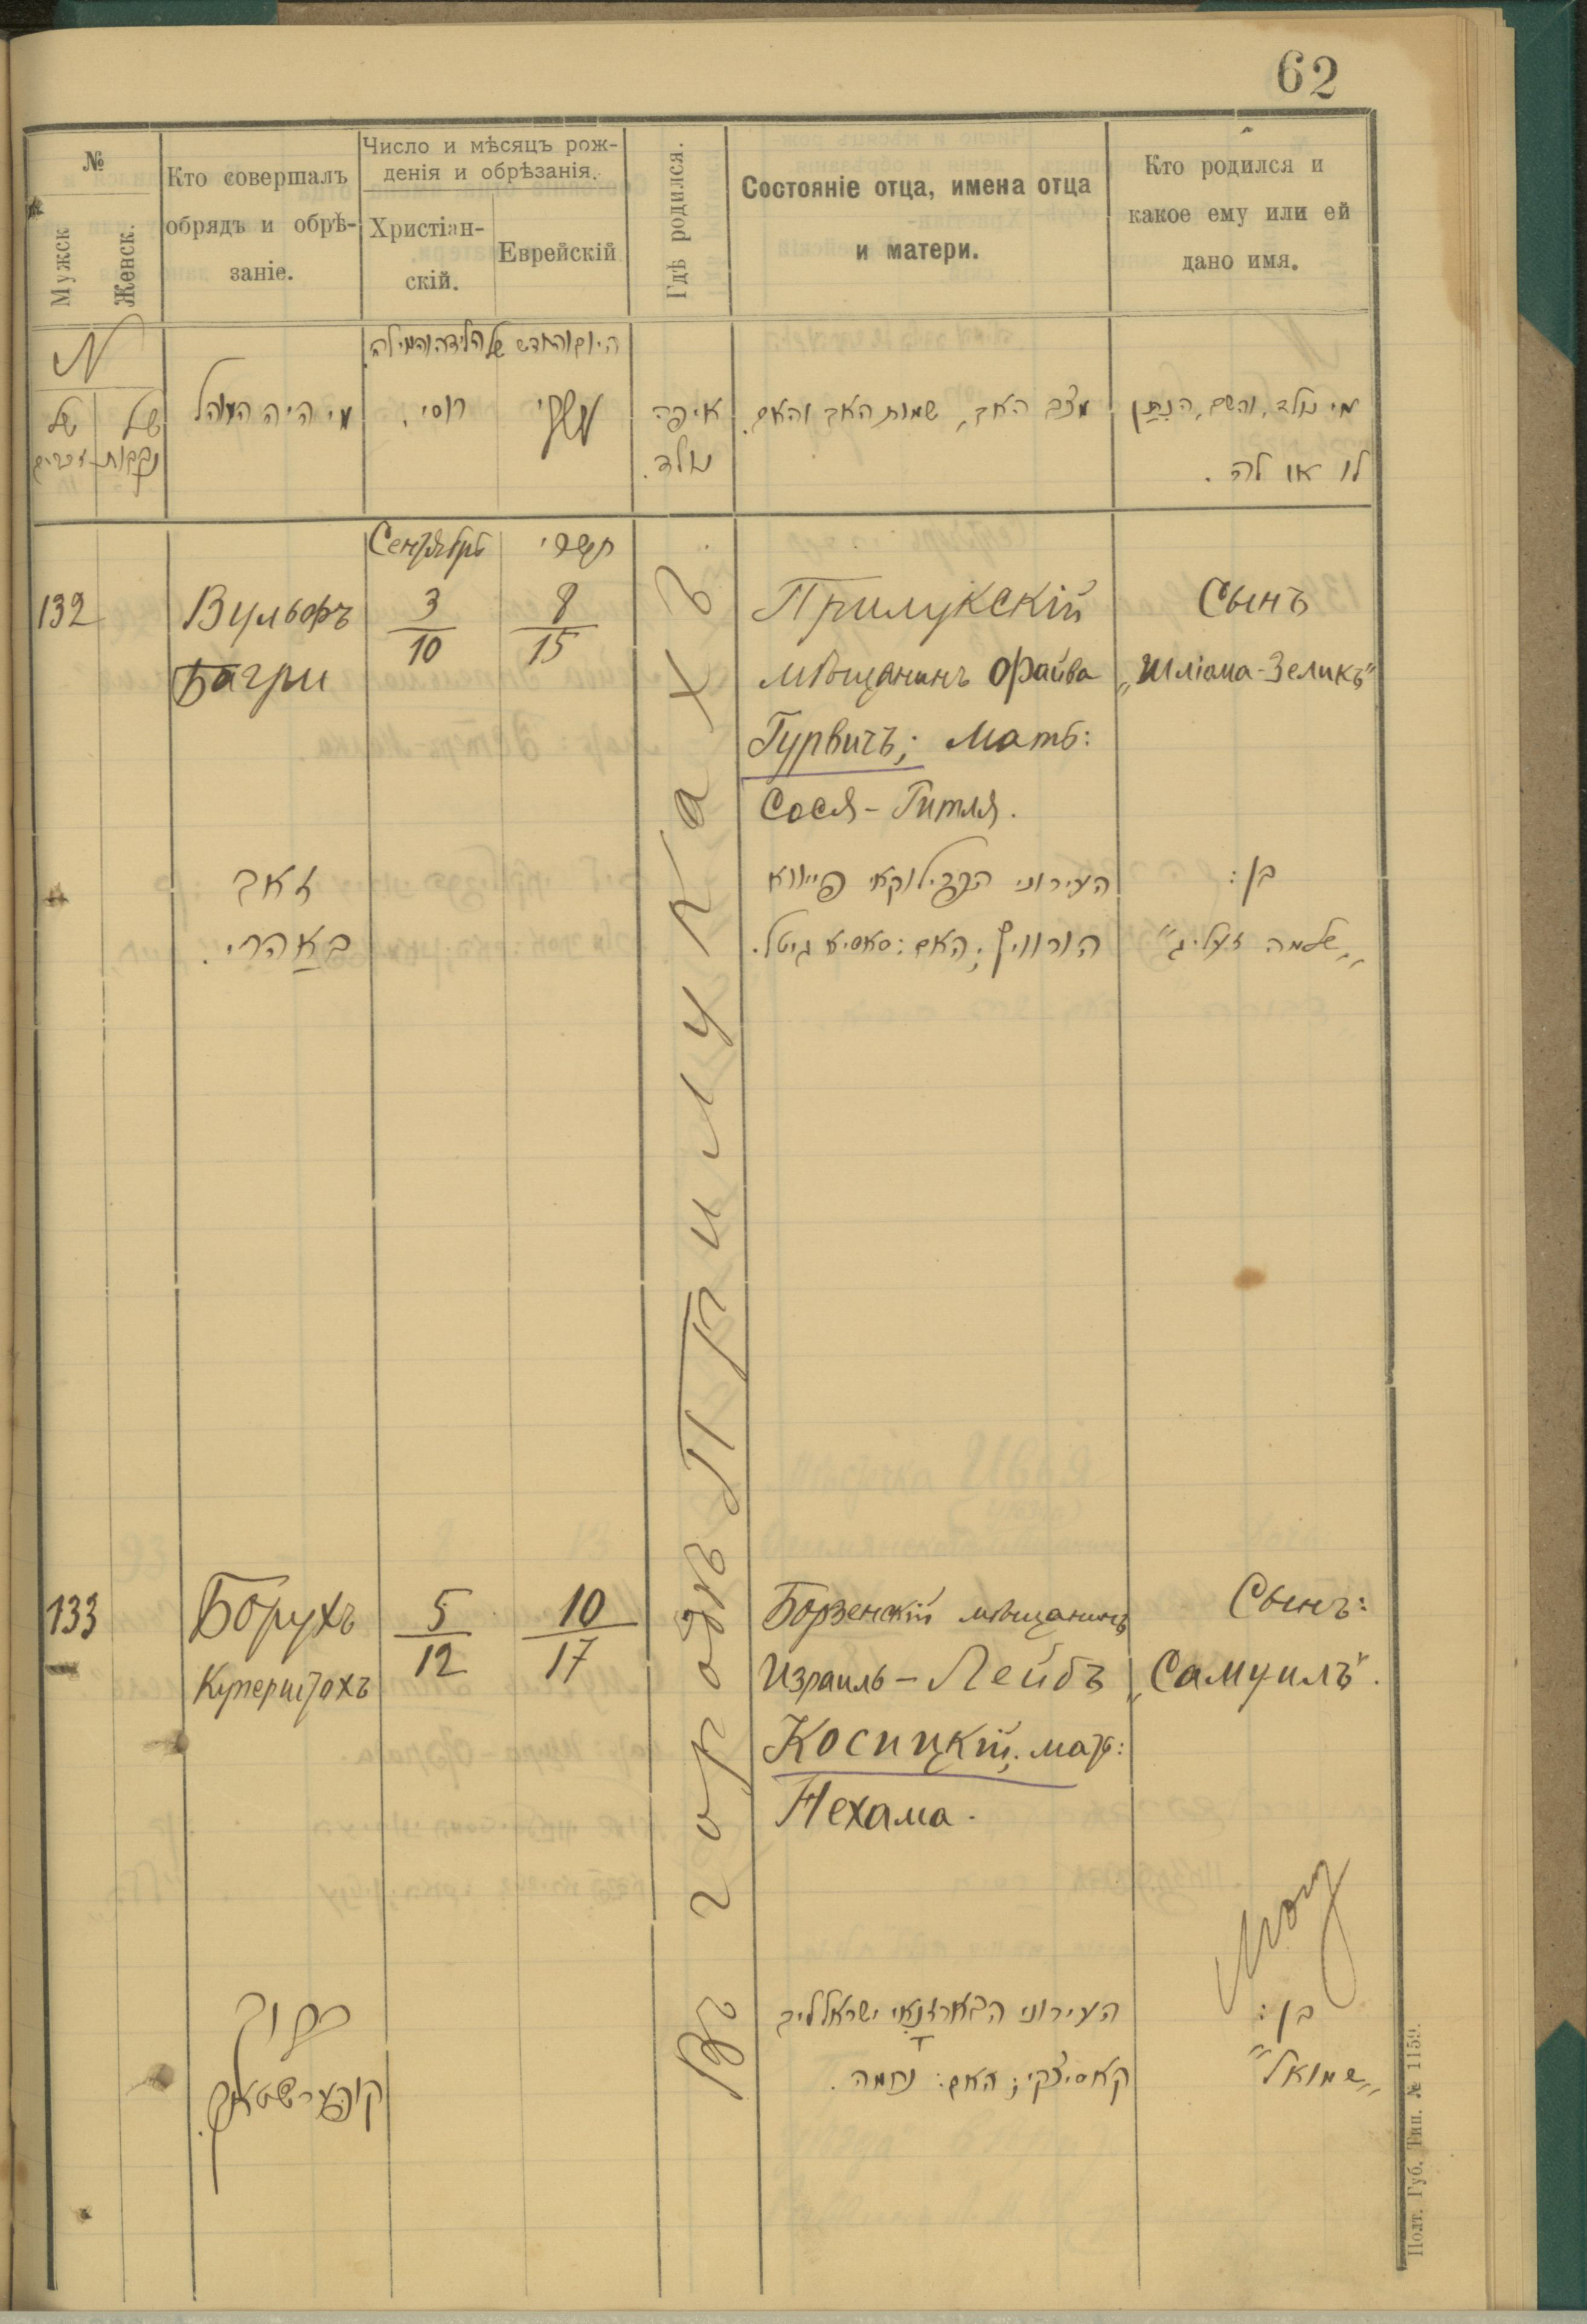 62
№
Мужск
Женск.
Кто совершалъ
обрядъ и обрѣ-
заніе.
Число и мѣсяцъ рож-
денія и обрѣзанія.
Христіан-
скій.
Еврейскій
Гдѣ родился.
Состояніе отца, имена отца
и матери.
Кто родился и
какое ему или ей
дано имя.
N
של
זכרים
של
נקבות
מי היה המוהל
היום והחדש של הלידה והמילה.
רוסי.
איפה
נולד.
מצב האב, שמות האב והאם.
מי נולד, והשם, הנתן
לו או לה.
Сентябрь
תשרי
132
Вульфъ
Багри
3
10
8
15
Прилукскій
мѣщанинъ Файва
Гурвичъ; Мать:
Сося-Гитля.
Сынъ
„Шліома-Зеликъ“
זאב
באהרי.
העירוני הפרילוקאי פייווא
הורוויץ; האם: סאסיא גיטל.
בן:
„שלמה זעליג“
Въ городѣ Прилукахъ
133
Борухъ
Куперштохъ
5
12
10
17
Борзенскій мѣщанинъ
Израиль-Лейбъ
Косицкій; мать:
Нехама.
Сынъ:
„Самуилъ“.
ברוך
קופערשטאך.
העירוני הבארזנאי ישראל ליב
קאסיצקי; האם: נחמה.
בן:
„שמואל“
Полт. Губ. Тип. № 1159.